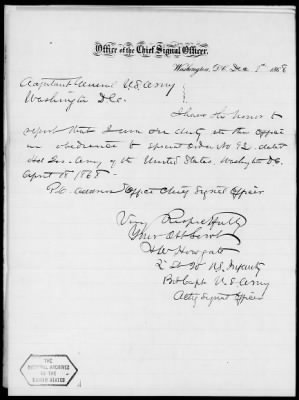 Office of the Chief Signal Officer,
Washington, D.C. Dec 1st 1868
Adjutant General U.S. Army
Washington D.C.
I have the honor to
report that I am on duty at this Office
in obedience to Special Order No 92 dated
Hd Qrs. Army of the United States, Washington D.C.
April 18" 1868-
P.O. address Office Chief Signal Officer
Very Respectfully
Your Obt Servt
H W Howgate
2d Lt 20" U.S. Infantry
Bvt Capt U.S. Army
Actg Signal Officer
THE
NATIONAL ARCHIVES
OF THE
UNITED STATES